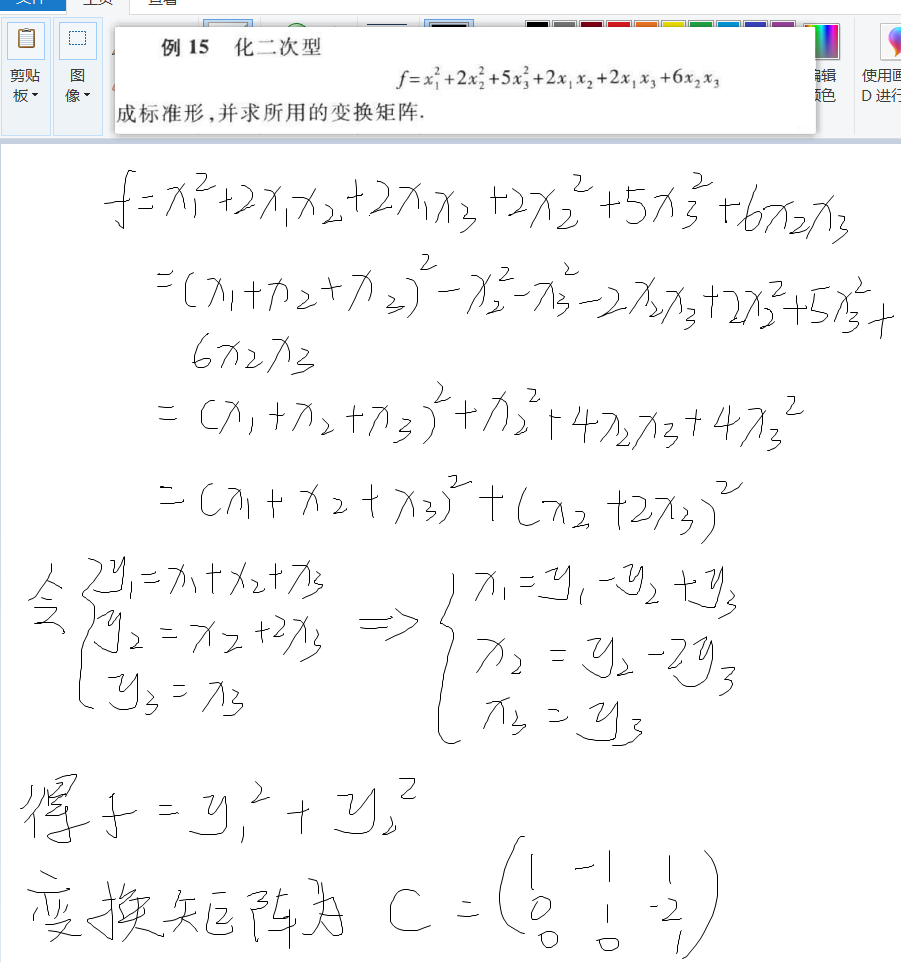 文件 主页 查看
剪贴板
图像
编辑颜色
使用画
D 进行
例 15 化二次型
f=x₁²+2x₂²+5x₃²+2x₁x₂+2x₁x₃+6x₂x₃
成标准形,并求所用的变换矩阵.
f=x₁²+2x₁x₂+2x₁x₃+2x₂²+5x₃²+6x₂x₃
=(x₁+x₂+x₃)²-x₂²-x₃²-2x₂x₃+2x₂²+5x₃²+
6x₂x₃
=(x₁+x₂+x₃)²+x₂²+4x₂x₃+4x₃²
=(x₁+x₂+x₃)²+(x₂+2x₃)²
令 { y₁=x₁+x₂+x₃ ⇒ { x₁=y₁-y₂+y₃
y₂=x₂+2x₃ x₂=y₂-2y₃
y₃=x₃ x₃=y₃
得f=y₁²+y₂²
变换矩阵为 C=(1 -1 1
0 1 -2
0 0 1)